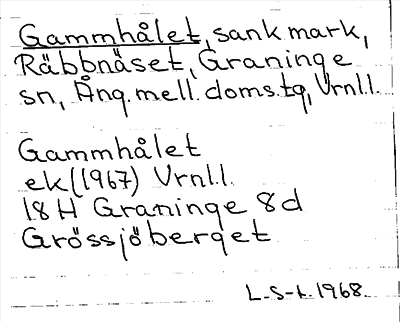 Gammhålet, sank mark,
Räbbnäset, Graninge
sn, Ång. mell. doms.tg, Vrnl.l.
Gammhålet
ek (1967) Vrnl.l.
18H Graninge 8d
Grössjöberget
L. S-t. 1968.